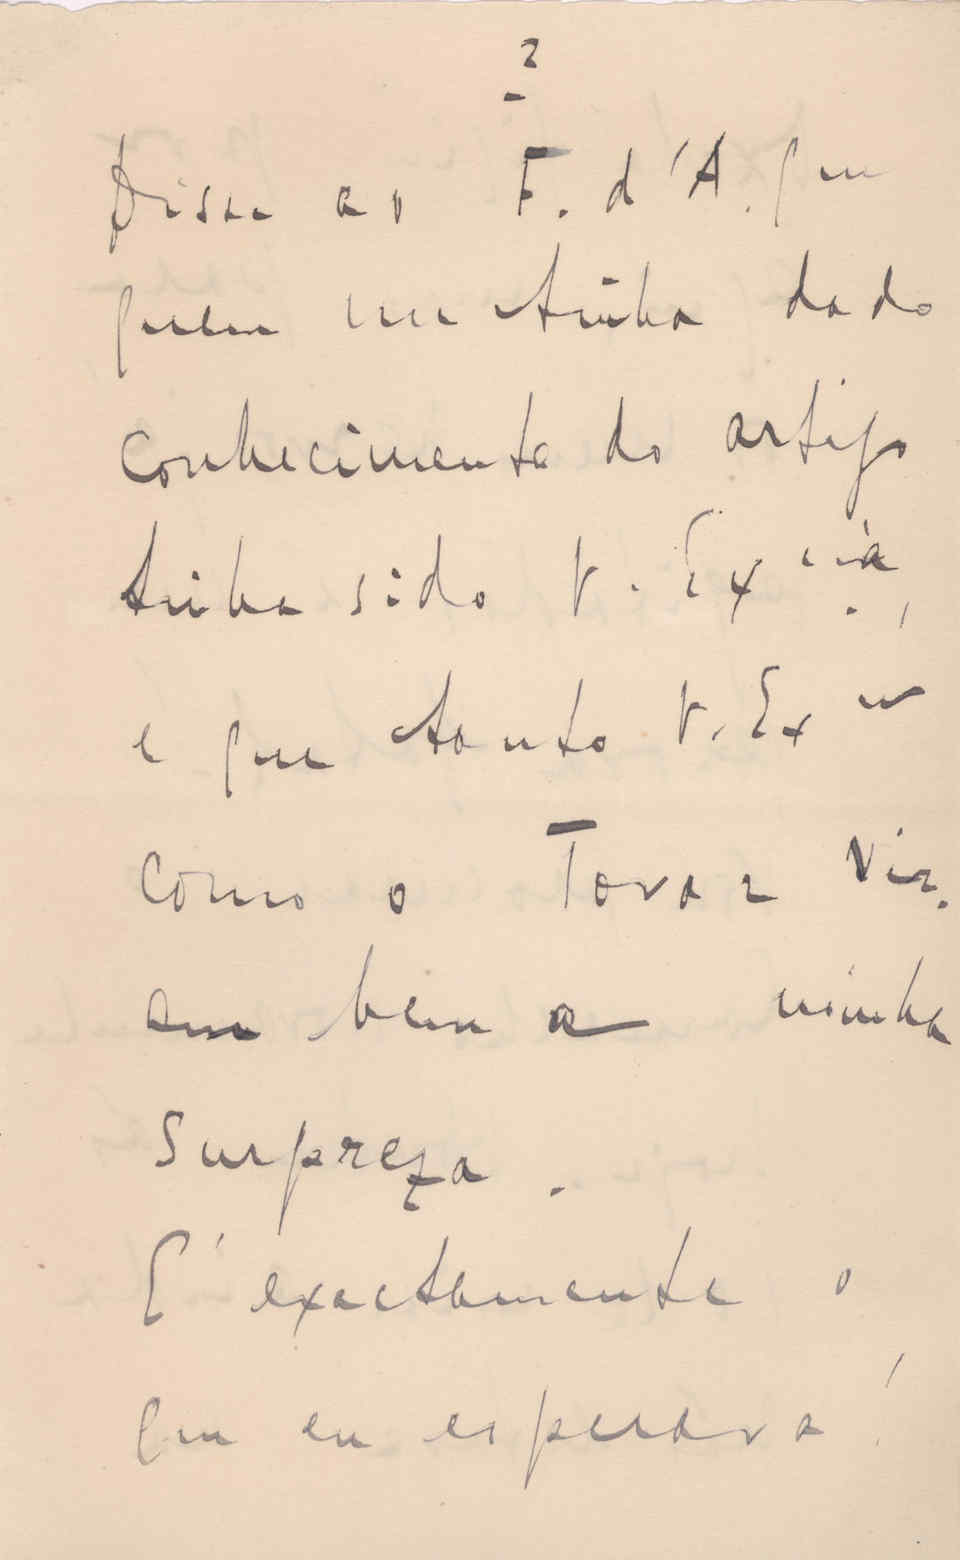 2
Disse ao F. d'A. que
quem me tinha dado
conhecimento do artigo
tinha sido V. Ex.cia,
e que tanto V. Ex
como o Tovar vir.
am bem a minha
surpreza.
E' exactamente o
que eu esperava!